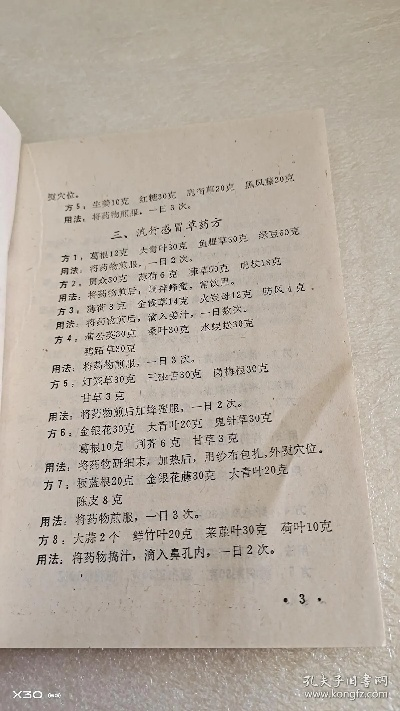 熨穴位。
方5：生姜10克 红糖30克 鹿衔草20克 黑风藤20克
用法：将药物煎服，一日3次。
三、流行感冒草药方
方1：葛根12克 大青叶30克 鱼腥草30克 绿豆60克
用法：将药物煎服，一日2次。
方2：贯众30克 薄荷6克 葎草50克 明党18克
用法：将药物煎后，兑拌蜂蜜，常饮。
方3：薄荷3克 金钱草14克 火炭母12克 防风4克，
用法：将药液煎后，滴入姜汁，一日数次。
方4：蒲公英30克 桑叶30克 水蜈蚣30克
鸭跖草30克
用法：将药物煎服，一日3次。
方5：灯笼草30克 岗梅根30克
甘草3克
用法：将药物煎后加蜂蜜服，一日2次。
方6：金银花30克 大青叶20克 鬼针草30克
葛根10克 荆芥6克 甘草3克
用法：将药物研细末，加热后，用纱布包扎，外熨穴位。
方7：板蓝根20克 金银花藤30克 大青叶20克
陈皮8克
用法：将药物煎服，一日3次。
方8：大蒜2个 鲜竹叶20克 莱菔叶30克 荷叶10克
用法：将药物捣汁，滴入鼻孔内，一日2次。
·3·
X30
孔夫子旧书网